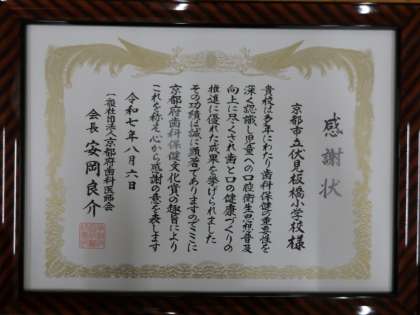 感謝状
京都市立伏見板橋小学校様
貴校は多年にわたり歯科保健の重要性を
深く認識し児童への口腔衛生思想普及
向上に尽くされ歯と口の健康づくりの
推進に優れた成果を挙げられました
その功績は誠に顕著でありますのでここに
京都府歯科保健文化賞の趣旨により
これを称え心から感謝の意を表します
令和七年八月六日
一般社団法人京都府歯科医師会
会長 安岡良介